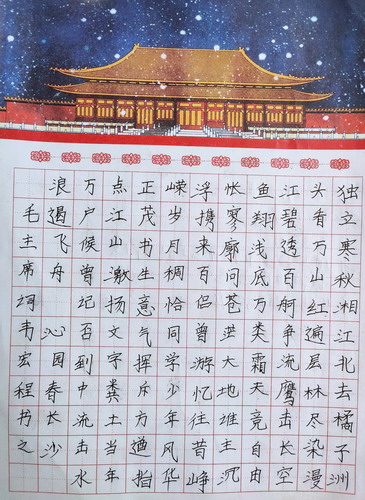 独立寒秋湘江北去橘子洲
头看万山红遍层林尽染漫
江碧透百舸争流鹰击长空
鱼翔浅底万类霜天竞自由
怅寥廓问苍茫大地谁主沉
浮携来百侣曾游忆往昔峥
嵘岁月稠恰同学少年风华
正茂书生意气挥斥方遒指
点江山激扬文字粪土当年
万户侯曾记否到中流击水
浪遏飞舟 沁园春长沙
毛主席词韦宏程书之